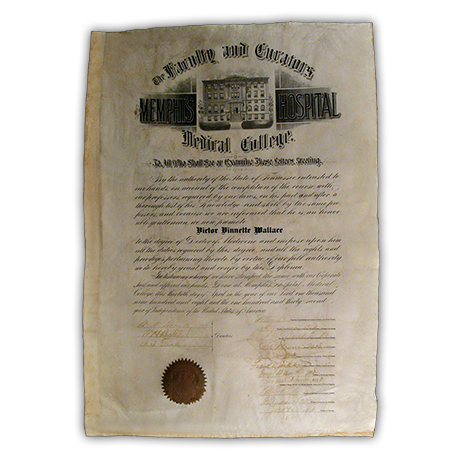 The Faculty and Curators
MEMPHIS HOSPITAL
Medical College.
To All Who Shall See or Examine These Letters Greeting.
By the authority of the State of Tennessee intrusted to
our hands, on account of the completion of the course with
us, professors, required by our laws, on his part and after a
thorough test of his knowledge and skill by the same pro-
fessors, and because we are informed that he is an honor-
able gentleman, we now promote
Victor Vinnette Wallace
to the degree of Doctor of Medicine and impose upon him
all the duties required by this degree, and all the rights and
privileges pertaining thereto by virtue of our full authority
we do hereby grant and confer by this Diploma.
In testimony whereof we have stamped this sheet with our Corporate
Seal and affixed our hands. Done at Memphis Hospital Medical
College this day of April in the year of our Lord one thousand
nine hundred and eight and one hundred and thirty second
year of Independence of the United States of America